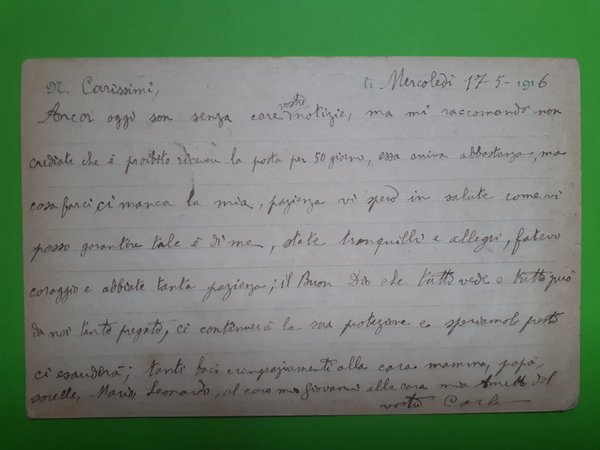 N. Carissimi, li Mercoledì 17-5-1916
Ancor oggi son senza care vostre notizie, ma mi raccomando non
crediate che è proibito ricevere la posta per 50 giorno, essa arriva abbastanza, ma
cosa farci, ci manca la mia, pazienza vi spero in salute come vi
posso garantire tale è di me, state tranquilli e allegri, fatevi
coraggio e abbiate tanta pazienza; il Buon Dio che tutto vede e tutto può
da noi tanto pregato, ci continuerà la sua protezione e speriamolo presto
ci esaudirà; tanti baci e ringraziamenti alla cara mamma, papà,
sorelle, Mario, Leonardo, al caro mio Giovanni alla cara mia dal
vostro Carlo